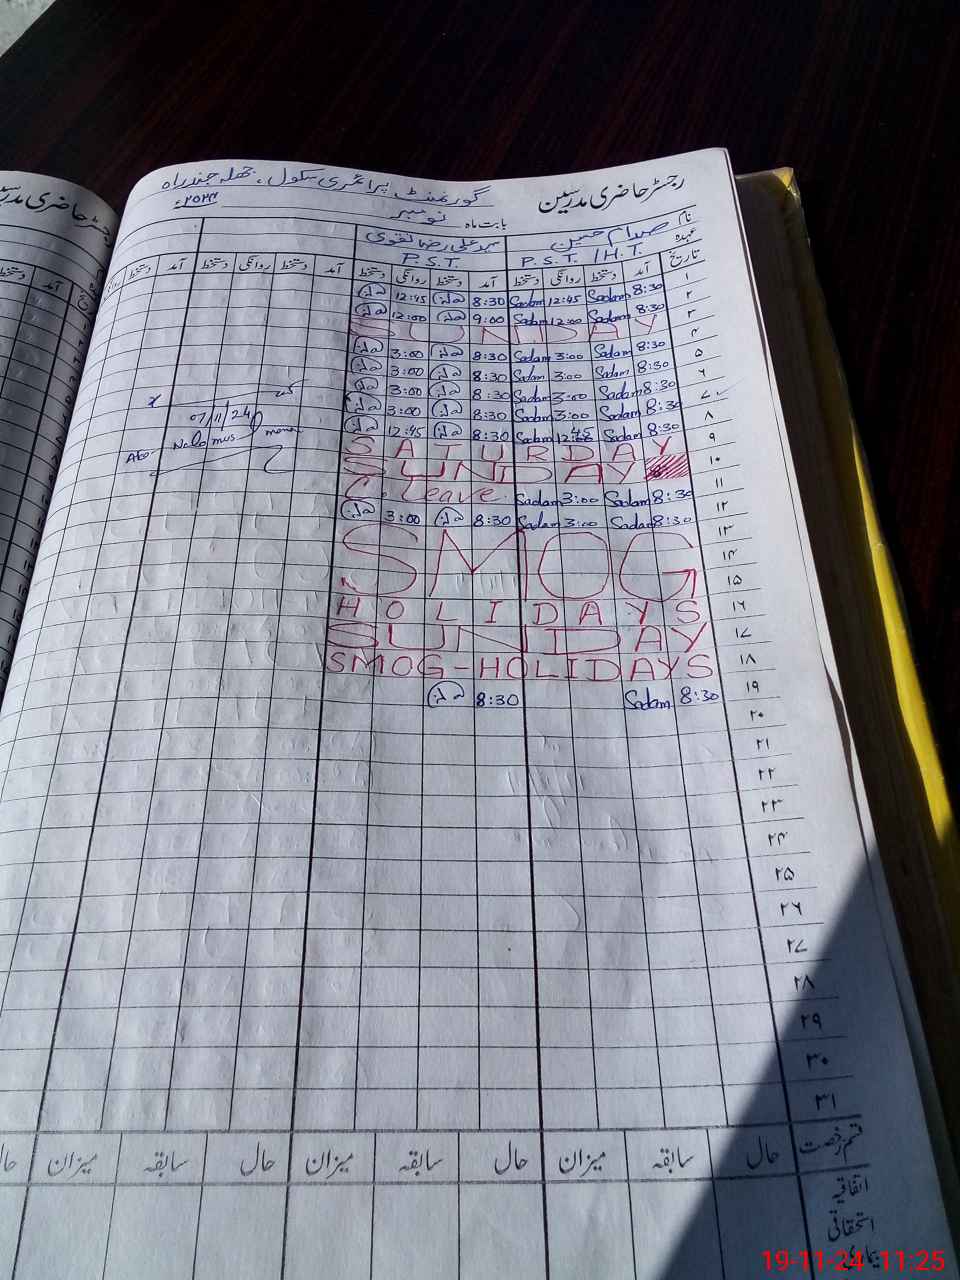 رجسٹر حاضری مدرسین گورنمنٹ پرائمری سکول،
بابت ماہ نومبر ۲۰۲۴ء
نام صدام حسین سید علی رضا نقوی
عہدہ P.S.T. / H.T. P.S.T.
تاریخ آمد دستخط روانگی دستخط آمد دستخط روانگی دستخط آمد دستخط روانگی دستخط آمد دستخط
۱ 8:30 Sadam 12:45 Sadam 8:30 12:45
۲ 8:30 Sadam 12:00 Sadam 9:00 12:00
۳ SUNDAY
۴ 8:30 Sadam 3:00 Sadam 8:30 3:00
۵ 8:30 Sadam 3:00 Sadam 8:30 3:00
۶ 8:30 Sadam 3:00 Sadam 8:30 3:00
۷ 8:30 Sadam 3:00 Sadam 8:30 3:00
07/11/24
۸ 8:30 Sadam 12:45 Sadam 8:30 12:45
۹ SATURDAY
۱۰ SUNDAY
۱۱ 8:30 Sadam 3:00 Sadam C. Leave
۱۲ 8:30 Sadam 3:00 Sadam 8:30 3:00
۱۳
۱۴ SMOG
۱۵
۱۶ HOLIDAYS
۱۷ SUNDAY
۱۸ SMOG-HOLIDAYS
۱۹ 8:30 Sadam 8:30
۲۰
۲۱
۲۲
۲۳
۲۴
۲۵
۲۶
۲۷
۲۸
۲۹
۳۰
۳۱
قسم رخصت حال سابقہ میزان حال سابقہ میزان حال سابقہ میزان
اتفاقیہ
استحقاقی
19-11-24 11:25